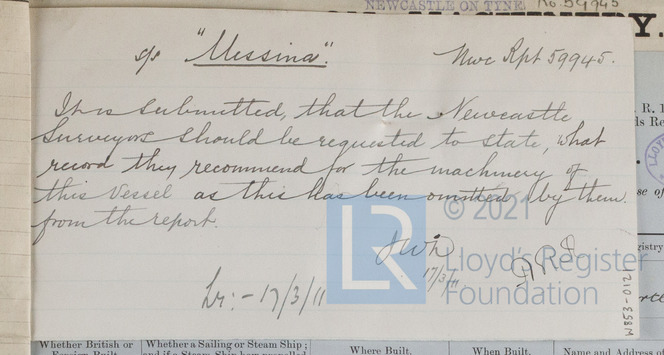 NEWCASTLE ON TYNE No. 59945
MACHINERY.
s/s "Messina". Nwc Rpt 59945.
It is submitted, that the Newcastle
Surveyors should be requested to state, what
record they recommend for the machinery of
this Vessel as this has been omitted by them
from the report.
JWD
17/3/11
Lr:- 17/3/11
LR
© 2021
Lloyd's Register
Foundation
LLOYD
gistry
Whether British or
Foreign Built.
Whether a Sailing or Steam Ship;
and if a Steam Ship how propelled
Where Built.
When Built.
Name and Address of